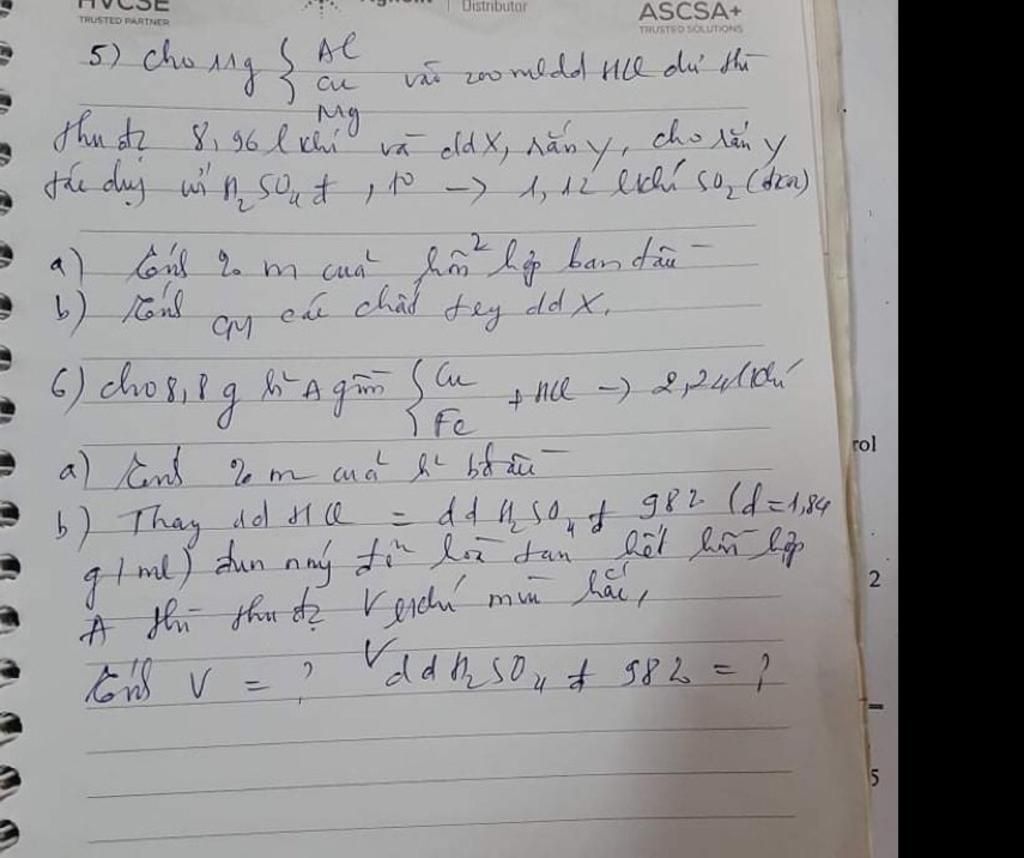 HVCSE
TRUSTED PARTNER
Distributor
ASCSA+
TRUSTED SOLUTIONS
5) cho 11g { Al Cu Mg vào 200 ml dd HCl dư thì
thu đc 8,96 l khí và ddX, rắn Y, cho rắn Y
tác dụng với H2SO4 đ, t° -> 1,12 l khí SO2 (đkc)
a) tính % m của hỗn hợp ban đầu
b) tính CM các chất trong dd X.
6) cho 8,8g h² A gồm { Cu Fe + HCl -> 2,24 l khí
a) tính % m của h² bđ đầu
b) Thay dd HCl = dd H2SO4 đ 98% (d = 1,84
g/ml) đun nóng để hoà tan hết hỗn hợp
A thì thu đc V l khí mùi hắc,
tính V = ? V dd H2SO4 đ 98% = ?
rol
2
5